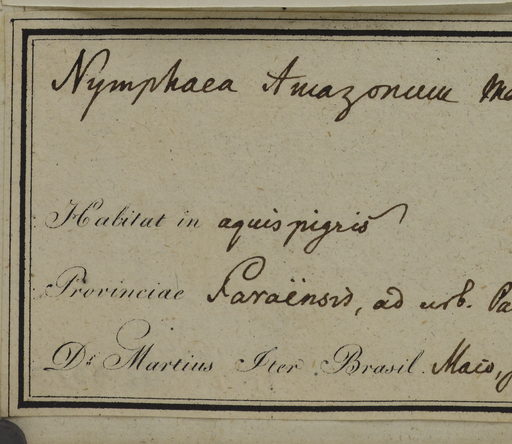 Nymphaea Amazonum Ma
Habitat in aquis pigris
Provinciae Paraënsis, ad urb. Pa
Dr. Martius Iter Brasil. Maio,